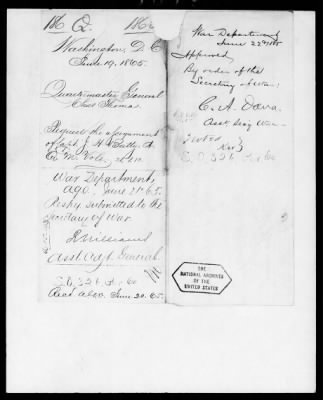 186 Q. 186
Washington, D. C.
June 19, 1865.
Quartermaster General
Chas Thomas.
Request the assignment
of Capt. J. H.
War Department,
AGO. June 21st 65.
Resply. submitted to the
Secretary of War
E. Williams
Asst. Adjt. General
S.O. 326
Recd. A.G.O. June 20. 65.
War Department
June 22nd
Approved
By order of the
Secretary of War:
C. A. Dana.
Asst. Secy War
Noted
S.O. 326
THE
NATIONAL ARCHIVES
OF THE
UNITED STATES